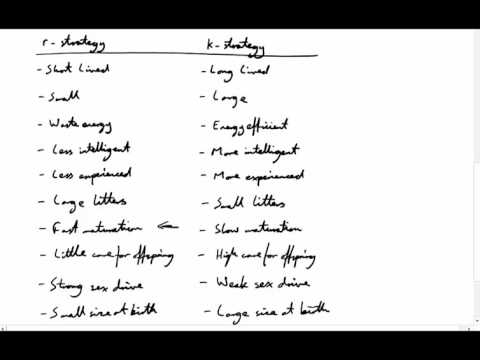 r-strategy k-strategy
- Short lived - Long lived
- Small - Large
- Waste energy - Energy efficient
- Less intelligent - More intelligent
- Less experienced - More experienced
- Large litters - Small litters
- Fast maturation ← - Slow maturation
- Little care for offspring - High care for offspring
- Strong sex drive - Weak sex drive
- Small size at birth - Large size at birth